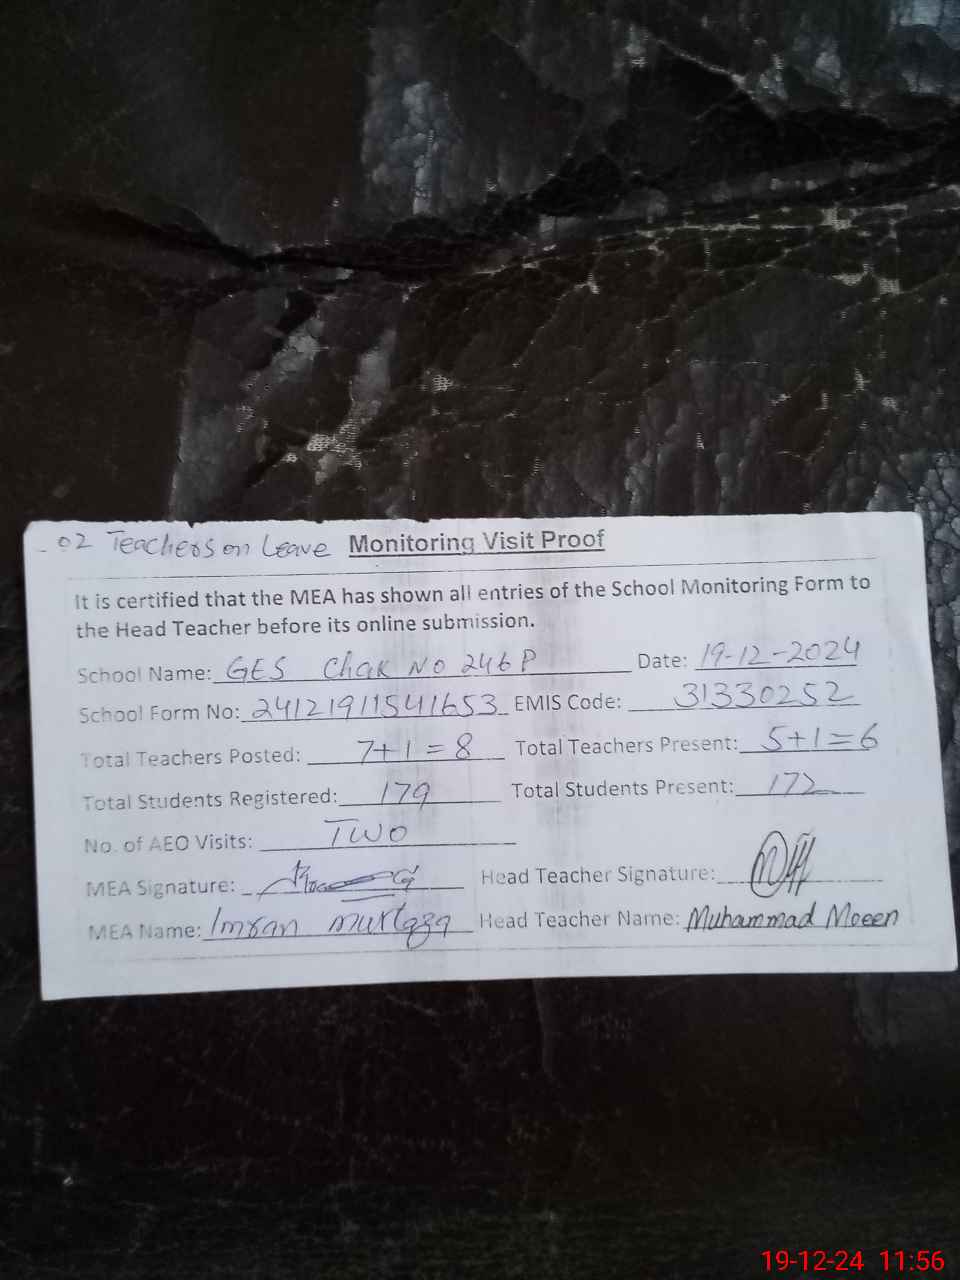 02 Teachers on Leave Monitoring Visit Proof
It is certified that the MEA has shown all entries of the School Monitoring Form to
the Head Teacher before its online submission.
School Name: GES Chak No 246 P Date: 19-12-2024
School Form No: 24121911541653 EMIS Code: 31330252
Total Teachers Posted: 7+1=8 Total Teachers Present: 5+1=6
Total Students Registered: 179 Total Students Present: 172
No. of AEO Visits: Two
MEA Signature: Head Teacher Signature:
MEA Name: Imran Murtaza Head Teacher Name: Muhammad Moeen
19-12-24 11:56